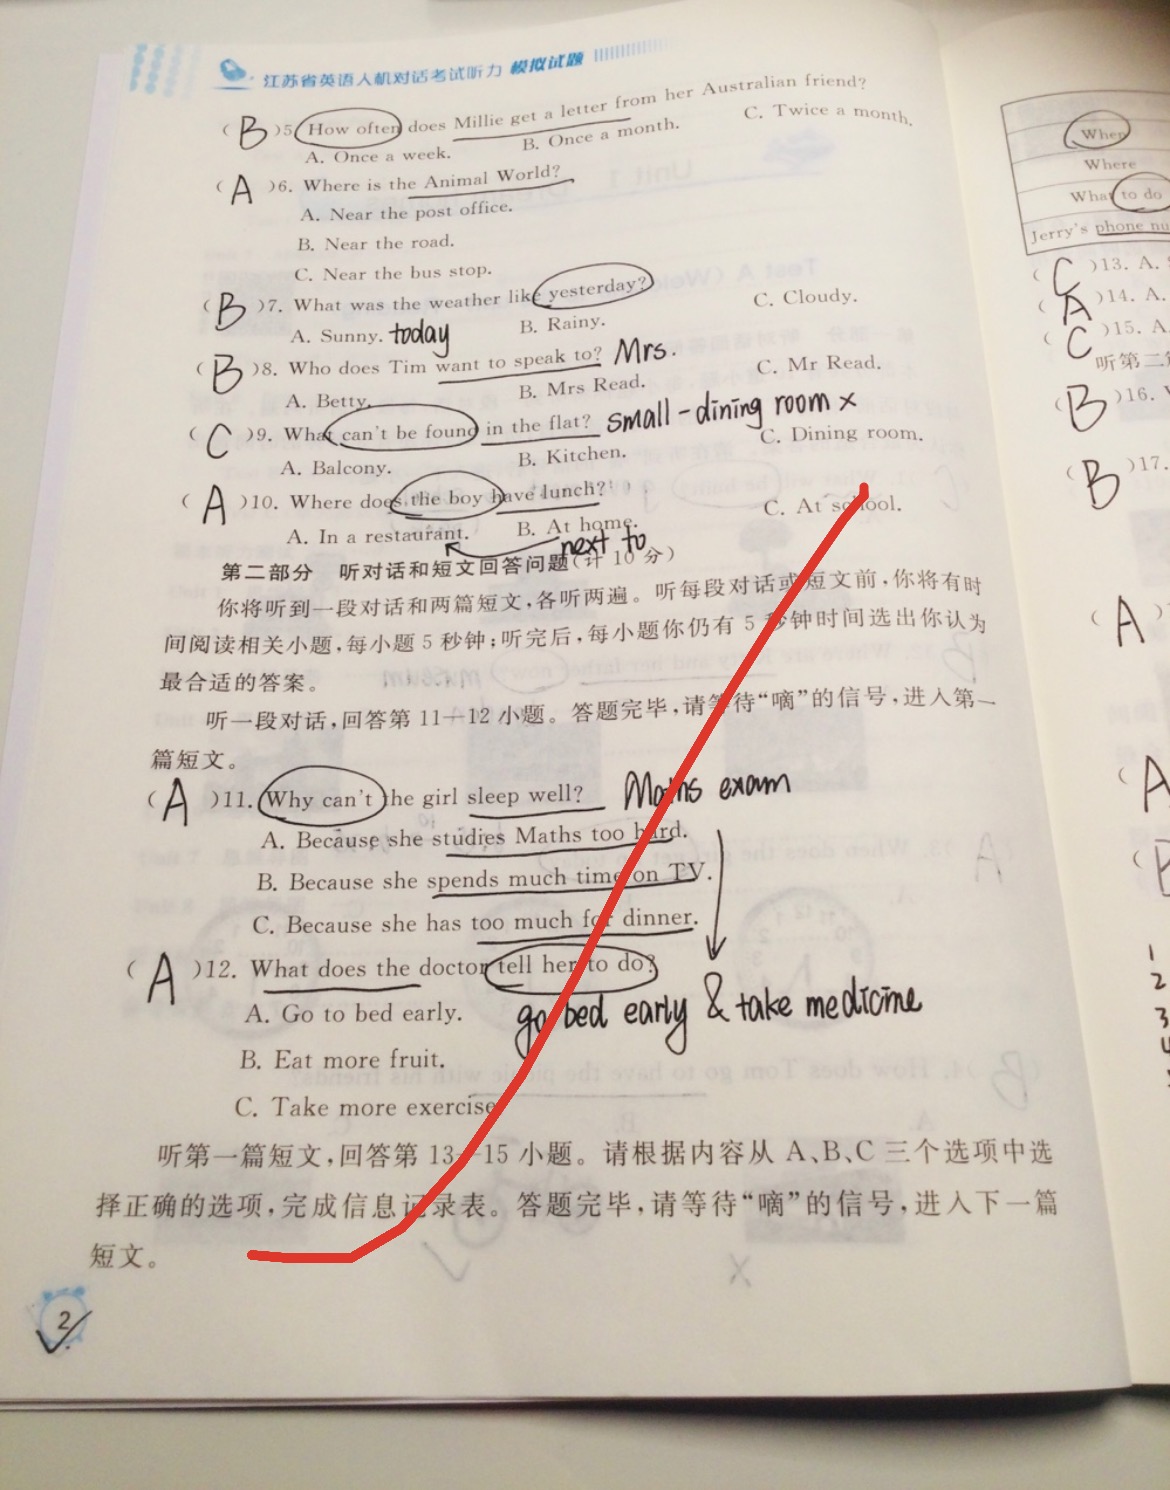 江苏省英语人机对话考试听力 模拟试题
( B )5. How often does Millie get a letter from her Australian friend?
A. Once a week. B. Once a month. C. Twice a month.
( A )6. Where is the Animal World?
A. Near the post office.
B. Near the road.
C. Near the bus stop.
( B )7. What was the weather like yesterday?
A. Sunny. today B. Rainy. C. Cloudy.
( B )8. Who does Tim want to speak to? Mrs.
A. Betty. B. Mrs Read. C. Mr Read.
( C )9. What can't be found in the flat? small-dining room x
A. Balcony. B. Kitchen. C. Dining room.
( A )10. Where does the boy have lunch?
A. In a restaurant. B. At home. C. At school.
next to
第二部分 听对话和短文回答问题(计 10 分)
你将听到一段对话和两篇短文,各听两遍。听每段对话或短文前,你将有时
间阅读相关小题,每小题 5 秒钟;听完后,每小题你仍有 5 秒钟时间选出你认为
最合适的答案。
听一段对话,回答第 11—12 小题。答题完毕,请等待“嘀”的信号,进入第一
篇短文。
( A )11. Why can't the girl sleep well? Maths exam
A. Because she studies Maths too hard.
B. Because she spends much time on TV.
C. Because she has too much for dinner.
( A )12. What does the doctor tell her to do?
A. Go to bed early. go bed early & take medicine
B. Eat more fruit.
C. Take more exercise
听第一篇短文,回答第 13—15 小题。请根据内容从 A、B、C 三个选项中选
择正确的选项,完成信息记录表。答题完毕,请等待“嘀”的信号,进入下一篇
短文。
2
When
Where
What to do
Jerry's phone nu
( C )13. A.
( A )14. A.
( C )15. A
听第二
( B )16.
( B )17.
( A )
( A
( B
1
2
3
4